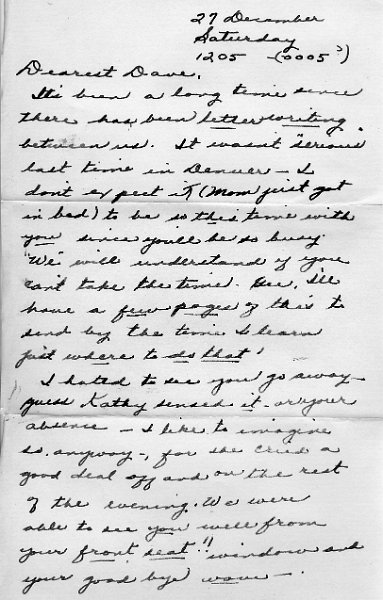 27 December
Saturday
1205 - (0005 s)
Dearest Dave,
Its been a long time since
there has been letter writing
between us. It wasnt "serious"
last time in Denver - I
dont expect it (Mom just got
in bed) to be so this time with
you since you'll be so busy.
"We" will understand if you
cant take the time. Gee, I'll
have a few pages of this to
send by the time I learn
just where to do that!
I hated to see you go away -
guess Kathy sensed it - or your
absence - I like to imagine
so, anyway -, for she cried a
good deal off and on the rest
of the evening. We were
able to see you well from
your front seat!! window and
your good bye wave -.